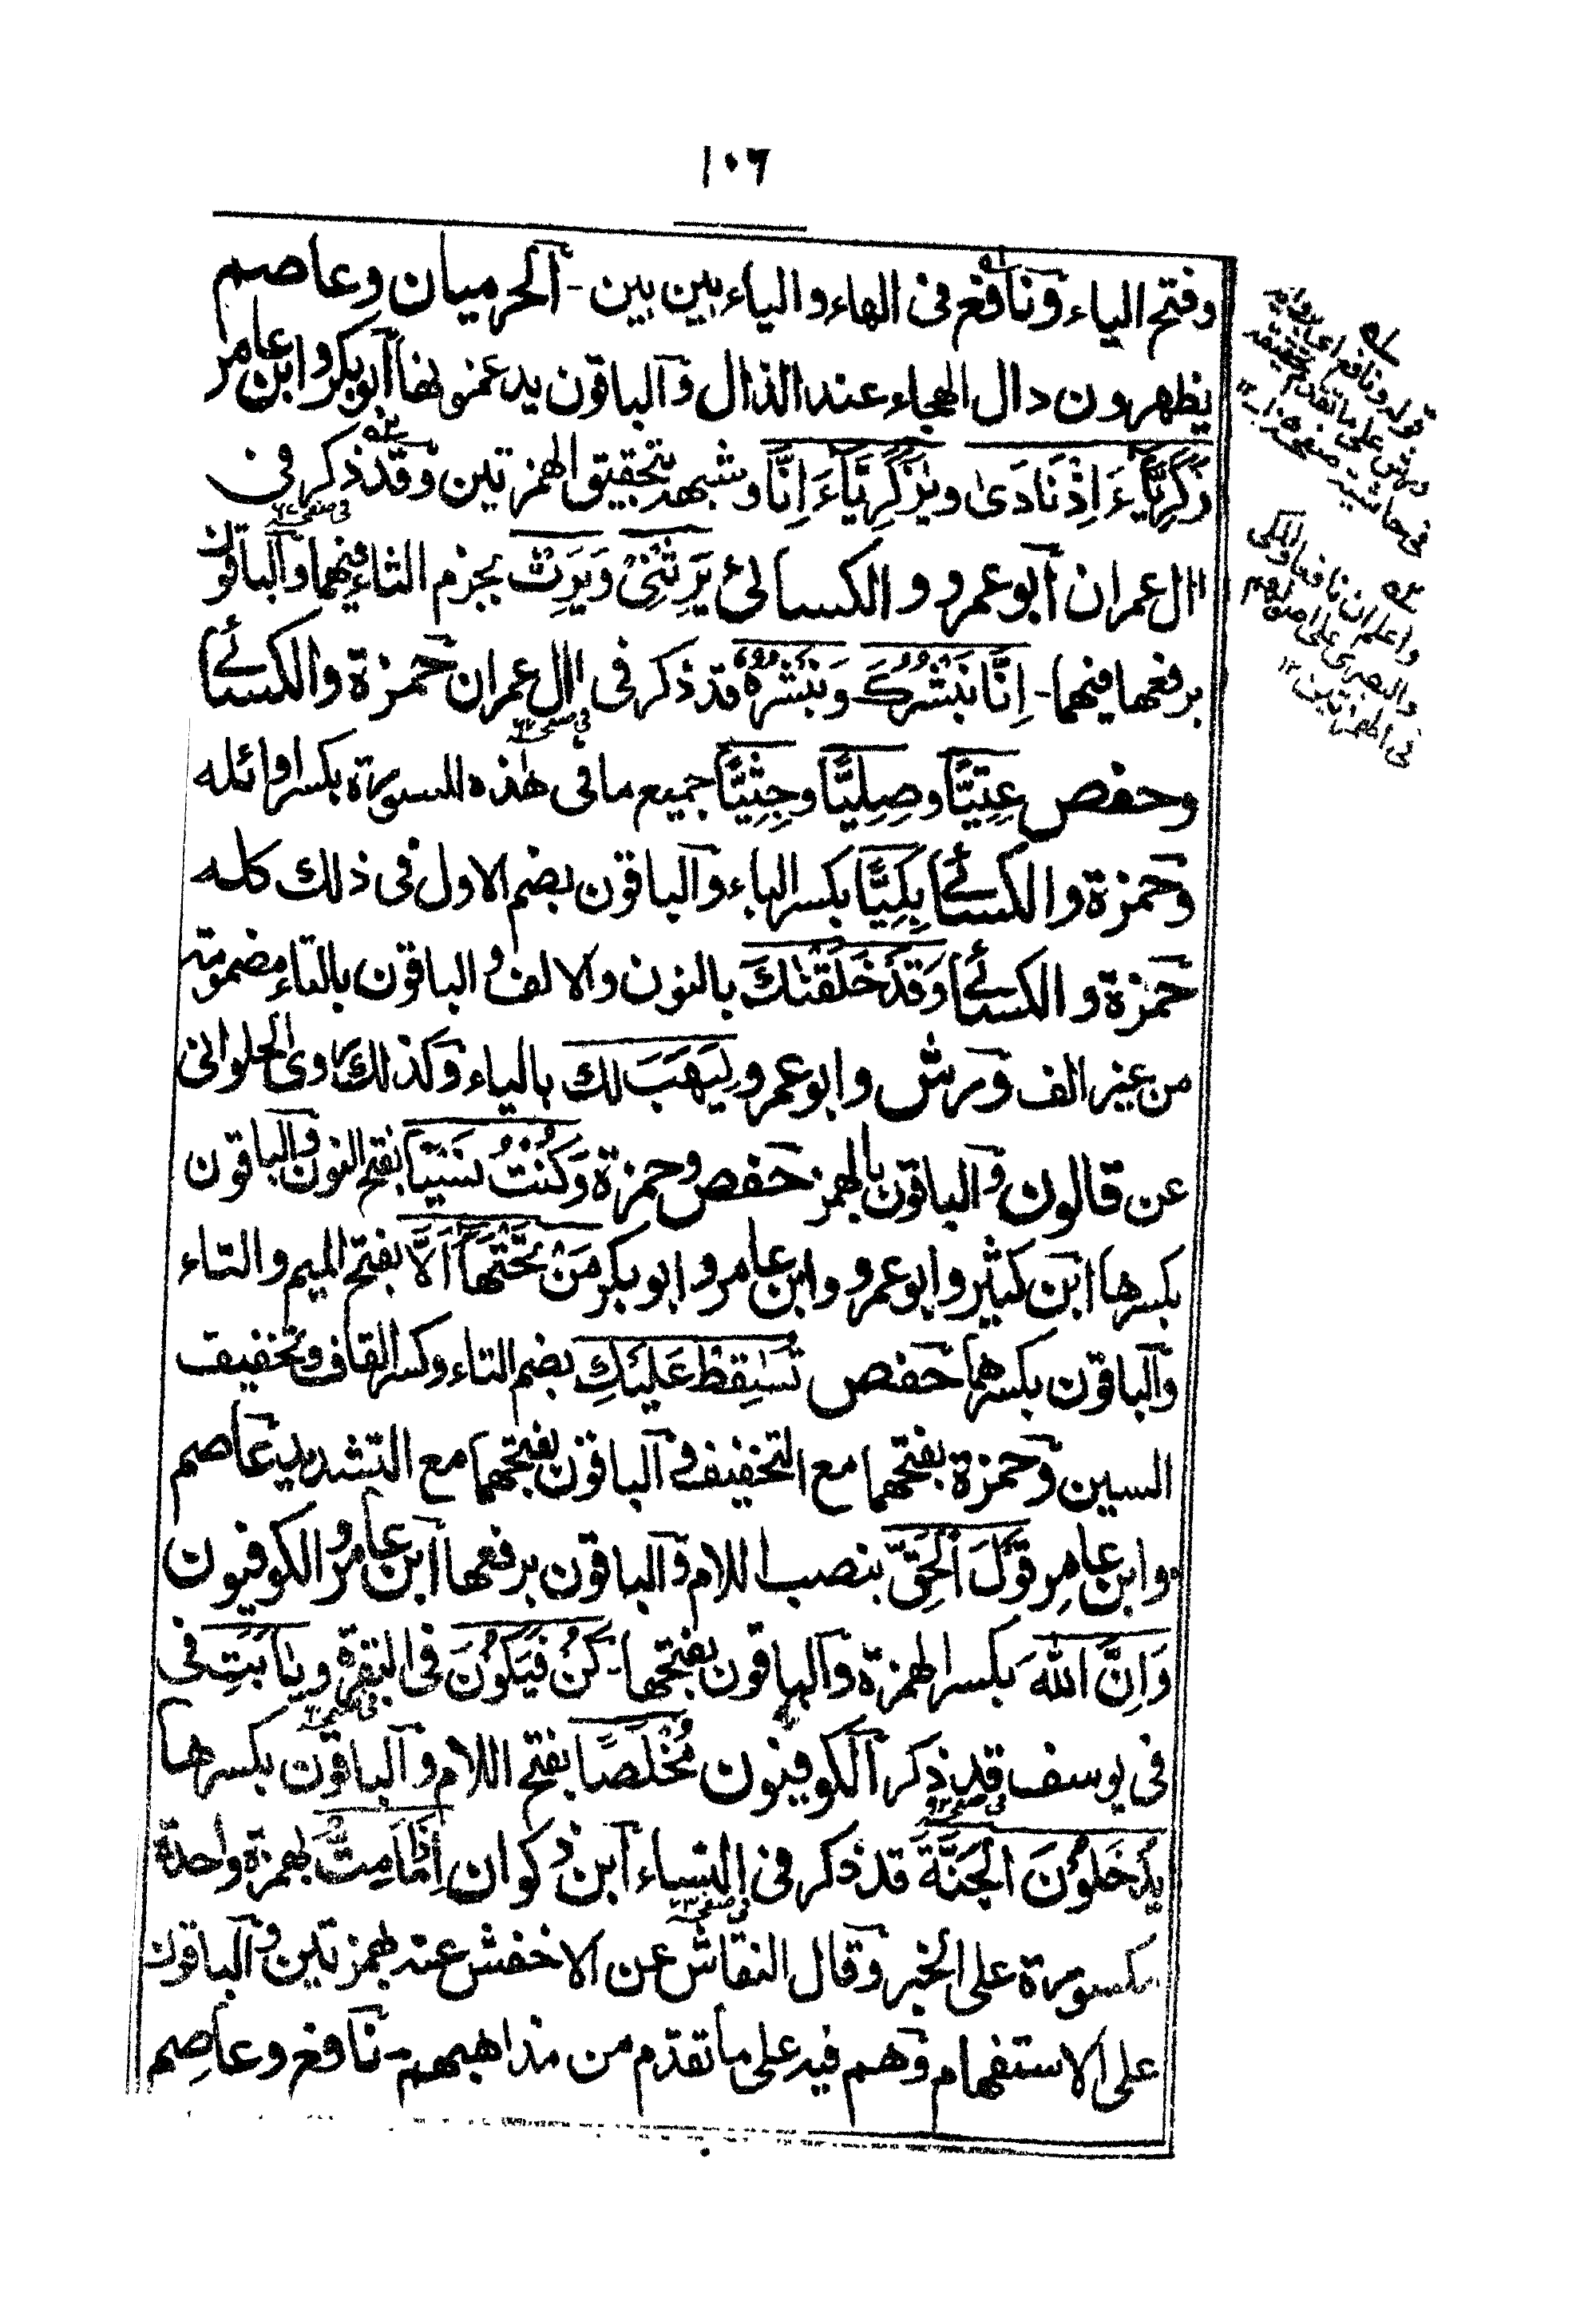 ١٠٦
وفتح الياء ونافع فى الهاء والياء بين بين - الحرميان وعاصم
يظهرون دال الهجاء عند الذال والباقون يدغمونها ابوبكر وابن عامر
زَكَرِيَّآءَ اِذْ نَادَىٰ ويٰزَكَرِيَّآءَ اِنَّا وشبهه بتحقيق الهمزتين وقد ذكر فى
اٰل عمران ابو عمرو والكسائى يَرِثْنِىْ وَيَرِثْ بجزم الثاء فيهما والباقون
برفعها فيهما - اِنَّا نُبَشِّرُكَ وَنُبَشِّرُهٗ قد ذكر فى اٰل عمران حمزة والكسائى
وحفص عِتِيًّا وصِلِيًّا وجِثِيًّا جميع ما فى هٰذه السورة بكسر اوائله
وحمزة والكسائى بِكِيًّا بكسر الباء والباقون بضم الاول فى ذلك كله
حمزة والكسائى وَقَدْ خَلَقْنٰكَ بالنون والالف والباقون بالتاء مضمومة
من غير الف ورش وابو عمرو لِيَهَبَ لك بالياء وكذلك روى الحلوانى
عن قالون والباقون بالهمز حفص وحمزة وَكُنْتُ نَسْيًا بفتح النون والباقون
بكسرها ابن كثير وابو عمرو وابن عامر وابو بكر مَنْ تَحْتَهَآ اَلَّا بفتح الميم والتاء
والباقون بكسرهما حفص تُسٰقِطْ عَلَيْكِ بضم التاء وكسر القاف وتخفيف
السين وحمزة بفتحهما مع التخفيف والباقون بفتحهما مع التشديد عاصم
وابن عامِر قَوْلَ الْحَقِّ بنصب اللام والباقون برفعها ابن عامر والكوفيون
وَاِنَّ اللّٰهَ بكسر الهمزة والباقون بفتحها - كُنْ فَيَكُوْنَ فى البقرة ويٰاَبَتِ فى
فى يوسف قد ذكر الكوفيون مُخْلَصًا بفتح اللام والباقون بكسرها
يُدْخَلُوْنَ الْجَنَّةَ قد ذكر فى النساء ابن ذكوان اِذَا مَا مِتُّ بهمزة واحدة
مكسورة على الخبر وقال النقاش عن الاخفش عنه بهمزتين والباقون
على الاستفهام وهم فيه على ما تقدّم من مذاهبهم - نافع وعاصِم
واعلم ان نافعا والمكى
والبصرى على اصولهم
فى الهمزتين ١٢